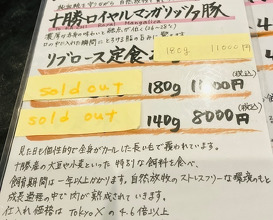 十勝ロイヤルマンガリッツァ豚
Royal Mangalica
リブロース定食
180g 11000円
sold out 180g 円(税込)
sold out 140g 8000円(税込)
見た目も個性的で全身がカールした長い毛で覆われています。
十勝産の大豆や小麦といった特別な飼料を食べ、
飼育期間は一年以上かかります。自然放牧のストレスフリーな環境のもと
成長過程の中で肉が熟成されていきます。
仕入れ価格は TokyoXの4.6倍以上